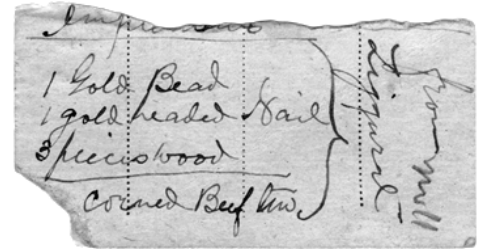 1 Gold Bead
1 gold headed Nail
3 pieces wood
Corned Beef tin
from